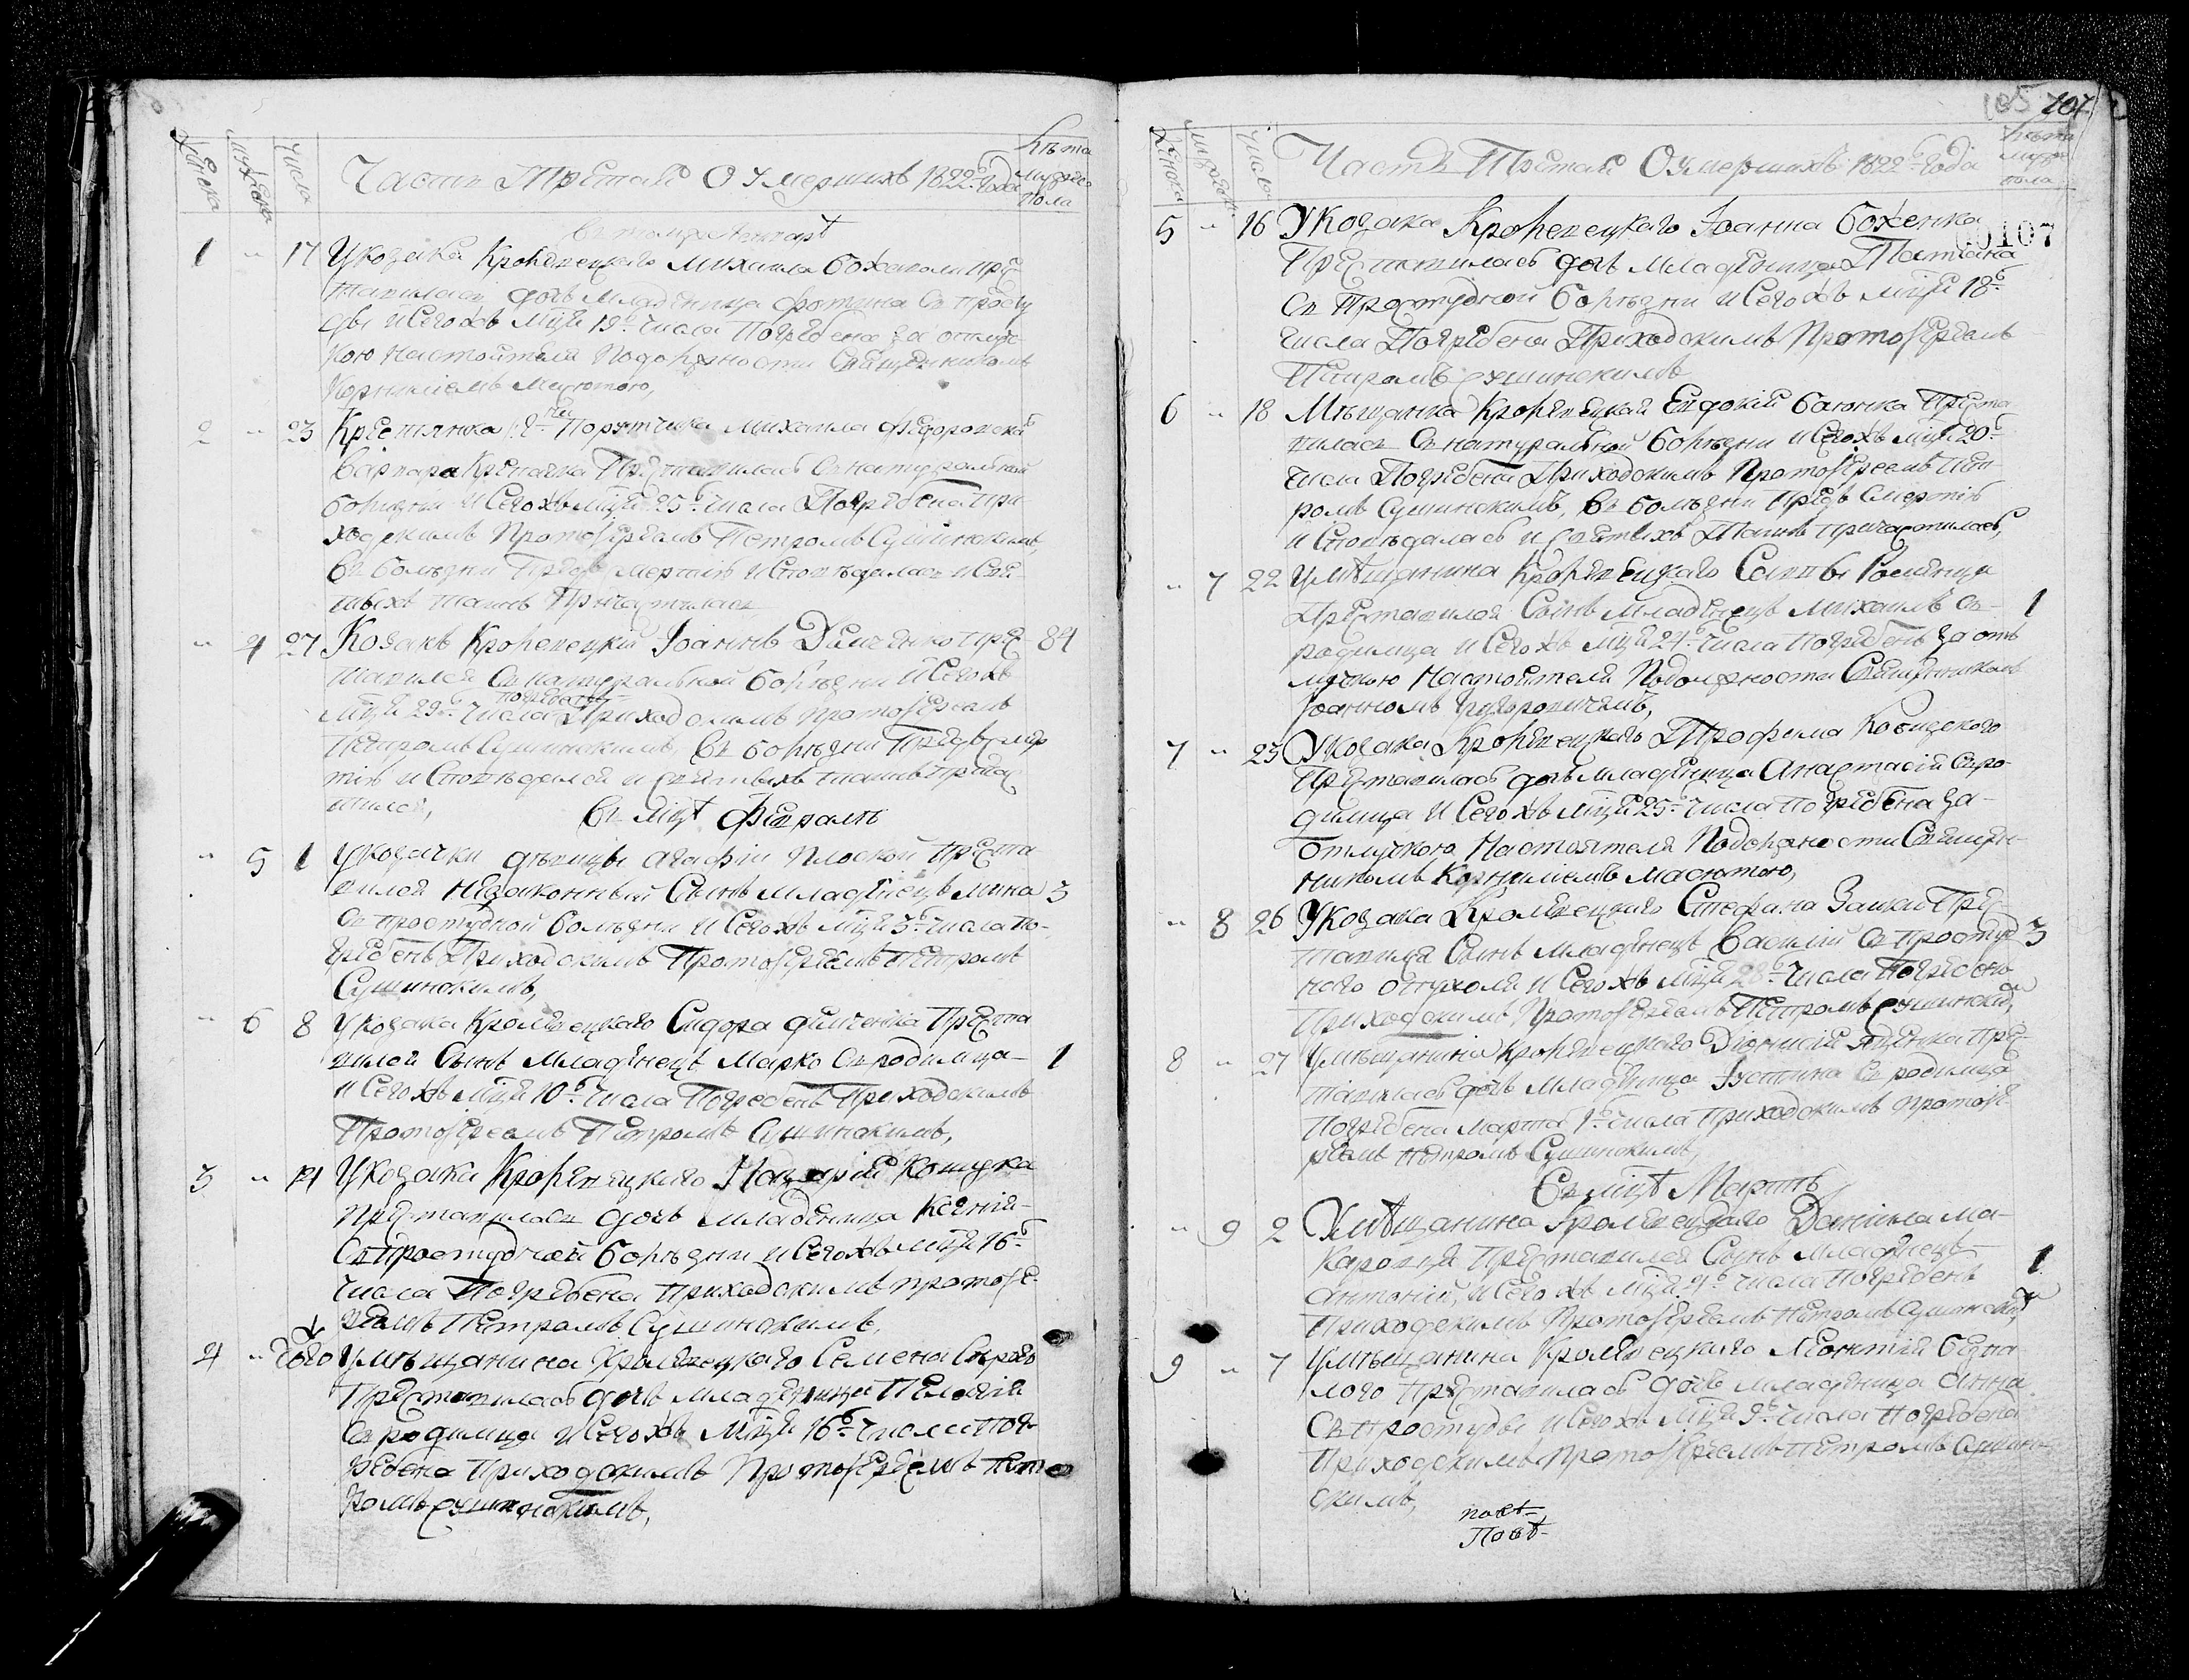 женска мужска числа Часть Третая О Умерших 1822го Года Лѣта мужеска пола
1 " 17 У козака Кролевецкаго Михаила преставилась дочь младеница Фотина от простуды
и сегожъ мѣсяца 19го числа погребена за отлучкою настоятеля по должности священникомъ
Корнилиемъ Масютою,
2 " 23 Крестянка Порутчика Михаила Федоровской
Варвара преставилась от натуральной
болѣзни и сегожъ мѣсяца 25го числа погребена при
ходскимъ протоиереемъ Петромъ Сушинскимъ,
въ болѣзни предъ смертію исповѣдалась и свя
тыхъ таинъ причастилась
" 4 27 Козакъ Кролевецкій Іоаннъ Демченко пре 84
ставился от натуральной болѣзни и сегожъ
мѣсяца 29го числа погребенъ приходскимъ протоиереемъ
Петромъ Сушинскимъ, въ болѣзни предъ смер
тію исповѣдался и святыхъ таинъ прича
стился,
Въ мцѣ Февралѣ
" 5 1 У козачки дѣвицы Агафіи Плоской преста
вился незаконный сынъ младенецъ Мина 3
от простудной болѣзни и сегожъ мѣсяца 3го числа по
гребенъ приходскимъ протоиереемъ Петромъ
Сушинскимъ,
" 6 8 У козака Кролевецкаго Сидора Демченка преста
вился сынъ младенецъ Марко от родимца 1
и сегожъ мѣсяца 10го числа погребенъ приходскимъ
протоиереемъ Петромъ Сушинскимъ,
3 " 14 У козака Кролевецкаго Назарія Кошурка
преставилась дочь младеница Ксенія
от простудной болѣзни и сегожъ мѣсяца 16го
числа погребена приходскимъ протоие
реемъ Петромъ Сушинскимъ,
4 " того У мѣщанина Кролевецкаго Семена Сѣраго
преставилась дочь младеница Пелагія
от родимца и сегожъ мѣсяца 16го числа пог
ребена приходскимъ протоиереемъ Пет
ромъ Сушинскимъ,
105 107
женска мужеска числа Часть Третая О умершихъ 1822го Года Лѣта мужеска пола
00107
5 " 16 У козака Кролевецкаго Іоанна Боженка
преставилась дочь младеница Татіана
от простудной болѣзни и сегожъ мѣсяца 18го
числа погребена приходскимъ протоиереемъ
Петромъ Сушинскимъ
6 " 18 Мѣщанка Кролевецкая Евдокія преста
вилась от натуральной болѣзни и сегожъ мѣсяца 20го
числа погребена приходскимъ протоиереемъ Пет
ромъ Сушинскимъ, въ болѣзни предъ смертію
исповѣдалась и святыхъ таинъ причастилась,
" 7 22 У мѣщанина Кролевецкаго Саввы Романца
преставился сынъ младенецъ Михаилъ от 1
родимца и сегожъ мѣсяца 24го числа погребенъ за от
лучкою настоятеля по должности священникомъ
Іоанномъ Григоровичемъ,
7 " 23 У козака Кролевецкаго Трофима
преставилась дочь младеница Анастасія от ро
димца и сегожъ мѣсяца 25го числа погребена за
отлучкою настоятеля по должности священ
никомъ Корнилиемъ Масютою,
" 8 26 У козака Кролевецкаго Стефана Зашки пре
ставился сынъ младенецъ Василій от простуд 3
ного опухоля и сегожъ мѣсяца 28го числа погребенъ
приходскимъ протоиереемъ Петромъ Сушинским,
8 " 27 У мѣщанина Кролевецкаго Діонисія Яценка пре
ставилась дочь младеница Іустина от родимца
погребена Марта 1го числа приходскимъ протоие
реемъ Петромъ Сушинскимъ,
Въ мцѣ Мартѣ
" 9 2 У мѣщанина Кролевецкаго Даниила Ма
каровця преставился сынъ младенецъ 1
Антоній, и сегожъ мѣсяца 4го числа погребенъ
приходскимъ протоиереемъ Петромъ Сушинским,
9 " 7 У мѣщанина Кролевецкаго Леонтія
преставилась дочь младеница Анна
от простуды и сегожъ мѣсяца 9го числа погребена
приходскимъ протоиереемъ Петромъ Сушин
скимъ,